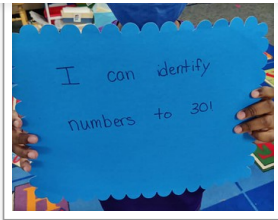 I can identify
numbers to 30!